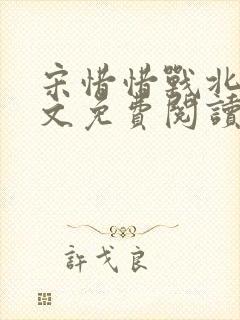 宋惜惜戰北
文免費閱讀
許戈良